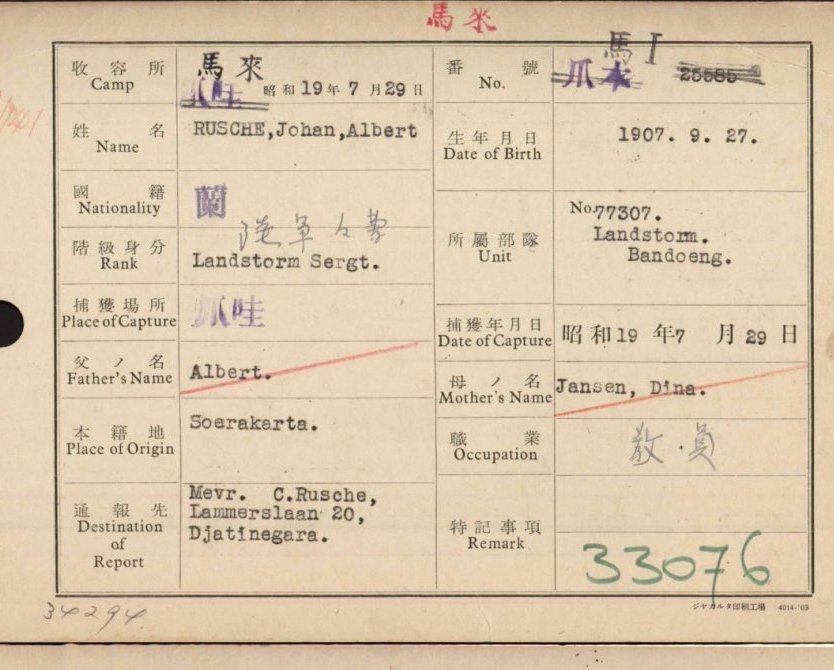 馬來
收容所
Camp
馬來
爪哇
昭和19年7月29日
番號
No.
馬I
爪本 25585
姓名
Name
RUSCHE,Johan,Albert
生年月日
Date of Birth
1907. 9. 27.
國籍
Nationality
蘭
所屬部隊
Unit
No.77307.
Landstorm.
Bandoeng.
階級身分
Rank
陸軍
Landstorm Sergt.
捕獲場所
Place of Capture
爪哇
捕獲年月日
Date of Capture
昭和19年7月29日
父ノ名
Father's Name
Albert.
母ノ名
Mother's Name
Jansen, Dina.
本籍地
Place of Origin
Soerakarta.
職業
Occupation
教員
通報先
Destination
of
Report
Mevr. C.Rusche,
Lammerslaan 20,
Djatinegara.
特記事項
Remark
33076
34294
ジャカルタ印刷工場 4014-'03